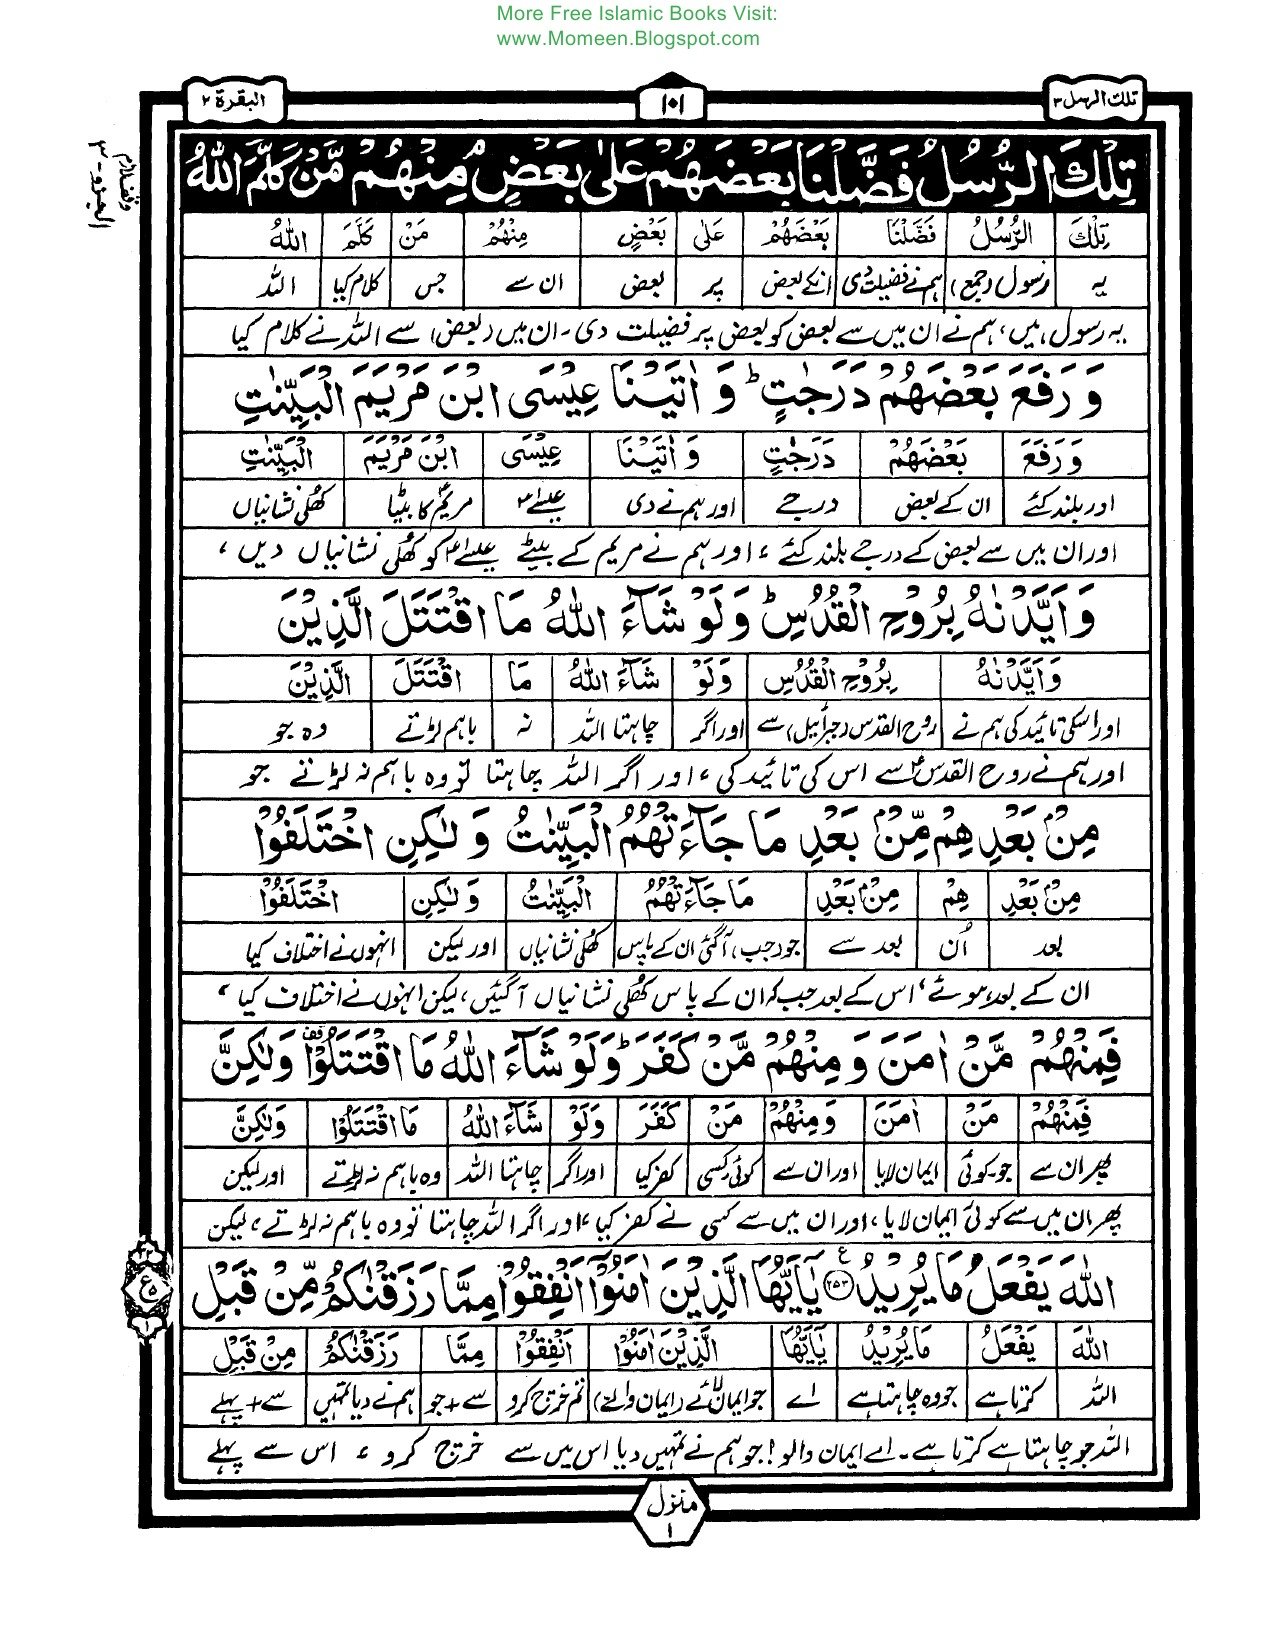 More Free Islamic Books Visit:
www.Momeen.Blogspot.com
تلك الرسل ۳
۱۰۱
البقرة ۲
تِلْكَ الرُّسُلُ فَضَّلْنَا بَعْضَهُمْ عَلٰى بَعْضٍ مِنْهُمْ مَّنْ كَلَّمَ اللّٰهُ
تِلْكَ الرُّسُلُ فَضَّلْنَا بَعْضَهُمْ عَلٰى بَعْضٍ مِنْهُمْ مَنْ كَلَّمَ اللّٰهُ
یہ رسول (جمع) ہم نے فضیلت دی انکے بعض پر بعض ان سے جس کلام کیا اللہ
یہ رسول ہیں، ہم نے ان میں سے بعض کو بعض پر فضیلت دی۔ ان میں (بعض) سے اللہ نے کلام کیا
وَ رَفَعَ بَعْضَهُمْ دَرَجٰتٍ ؕ وَ اٰتَيْنَا عِيْسَى ابْنَ مَرْيَمَ الْبَيِّنٰتِ
وَ رَفَعَ بَعْضَهُمْ دَرَجٰتٍ وَ اٰتَيْنَا عِيْسَى ابْنَ مَرْيَمَ الْبَيِّنٰتِ
اور بلند کئے ان کے بعض درجے اور ہم نے دی عیسےٰؑ مریمؑ کا بیٹا کھلی نشانیاں
اور ان میں سے بعض کے درجے بلند کئے، اور ہم نے مریم کے بیٹے عیسےٰؑ کو کھلی نشانیاں دیں،
وَ اَيَّدْنٰهُ بِرُوْحِ الْقُدُسِ ؕ وَ لَوْ شَآءَ اللّٰهُ مَا اقْتَتَلَ الَّذِيْنَ
وَ اَيَّدْنٰهُ بِرُوْحِ الْقُدُسِ وَ لَوْ شَآءَ اللّٰهُ مَا اقْتَتَلَ الَّذِيْنَ
اور اسکی تائید کی ہم نے روح القدس (جبرائیل) سے اور اگر چاہتا اللہ نہ باہم لڑتے وہ جو
اور ہم نے روح القدسؑ سے اس کی تائید کی، اور اگر اللہ چاہتا تو وہ باہم نہ لڑتے جو
مِنْۢ بَعْدِهِمْ مِّنْۢ بَعْدِ مَا جَآءَتْهُمُ الْبَيِّنٰتُ وَ لٰكِنِ اخْتَلَفُوْا
مِنْۢ بَعْدِ هِمْ مِنْۢ بَعْدِ مَا جَآءَتْهُمُ الْبَيِّنٰتُ وَ لٰكِنِ اخْتَلَفُوْا
بعد اُن بعد سے جو (جب) آ گئی ان کے پاس کھلی نشانیاں اور لیکن انہوں نے اختلاف کیا
ان کے بعد ہوئے، اس کے بعد جبکہ ان کے پاس کھلی نشانیاں آ گئیں، لیکن انہوں نے اختلاف کیا،
فَمِنْهُمْ مَّنْ اٰمَنَ وَ مِنْهُمْ مَّنْ كَفَرَ ؕ وَ لَوْ شَآءَ اللّٰهُ مَا اقْتَتَلُوْا وَ لٰكِنَّ
فَمِنْهُمْ مَنْ اٰمَنَ وَ مِنْهُمْ مَنْ كَفَرَ وَ لَوْ شَآءَ اللّٰهُ مَا اقْتَتَلُوْا وَ لٰكِنَّ
پھر ان سے جو کوئی ایمان لایا اور ان سے کوئی کسی کفر کیا اور اگر چاہتا اللہ وہ باہم نہ لڑتے اور لیکن
پھر ان میں سے کوئی ایمان لایا، اور ان میں سے کسی نے کفر کیا، اور اگر اللہ چاہتا تو وہ باہم نہ لڑتے، لیکن
اللّٰهَ يَفْعَلُ مَا يُرِيْدُ ۲۵۳ ع يٰۤاَيُّهَا الَّذِيْنَ اٰمَنُوْۤا اَنْفِقُوْا مِمَّا رَزَقْنٰكُمْ مِّنْ قَبْلِ
اللّٰهَ يَفْعَلُ مَا يُرِيْدُ يٰۤاَيُّهَا الَّذِيْنَ اٰمَنُوْۤا اَنْفِقُوْا مِمَّا رَزَقْنٰكُمْ مِنْ قَبْلِ
اللہ کرتا ہے جو وہ چاہتا ہے اے جو ایمان لائے (ایمان والے) تم خرچ کرو سے + جو ہم نے دیا تمہیں سے + پہلے
اللہ جو چاہتا ہے کرتا ہے۔ اے ایمان والو! جو ہم نے تمہیں دیا اس میں سے خرچ کرو، اس سے پہلے
ع
منزل
۱